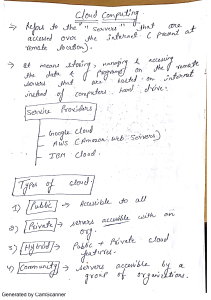 Cloud Computing
→ Refers to the "servers" that are
accessed over the internet (present at
remote location).
→ It means storing, managing & accessing
the data & programs on the remote
servers that are hosted on internet
instead of computers hard drive.
Service Providers
- Google Cloud
- AWS (Amazon Web Servers)
- IBM Cloud.
Types of Cloud
1) Public → Accessible to all
2) Private → servers accessible with an
org.
3) Hybrid → Public + Private cloud
features.
4) Community → servers accessible by a
group of organizations.
Generated by Camscanner